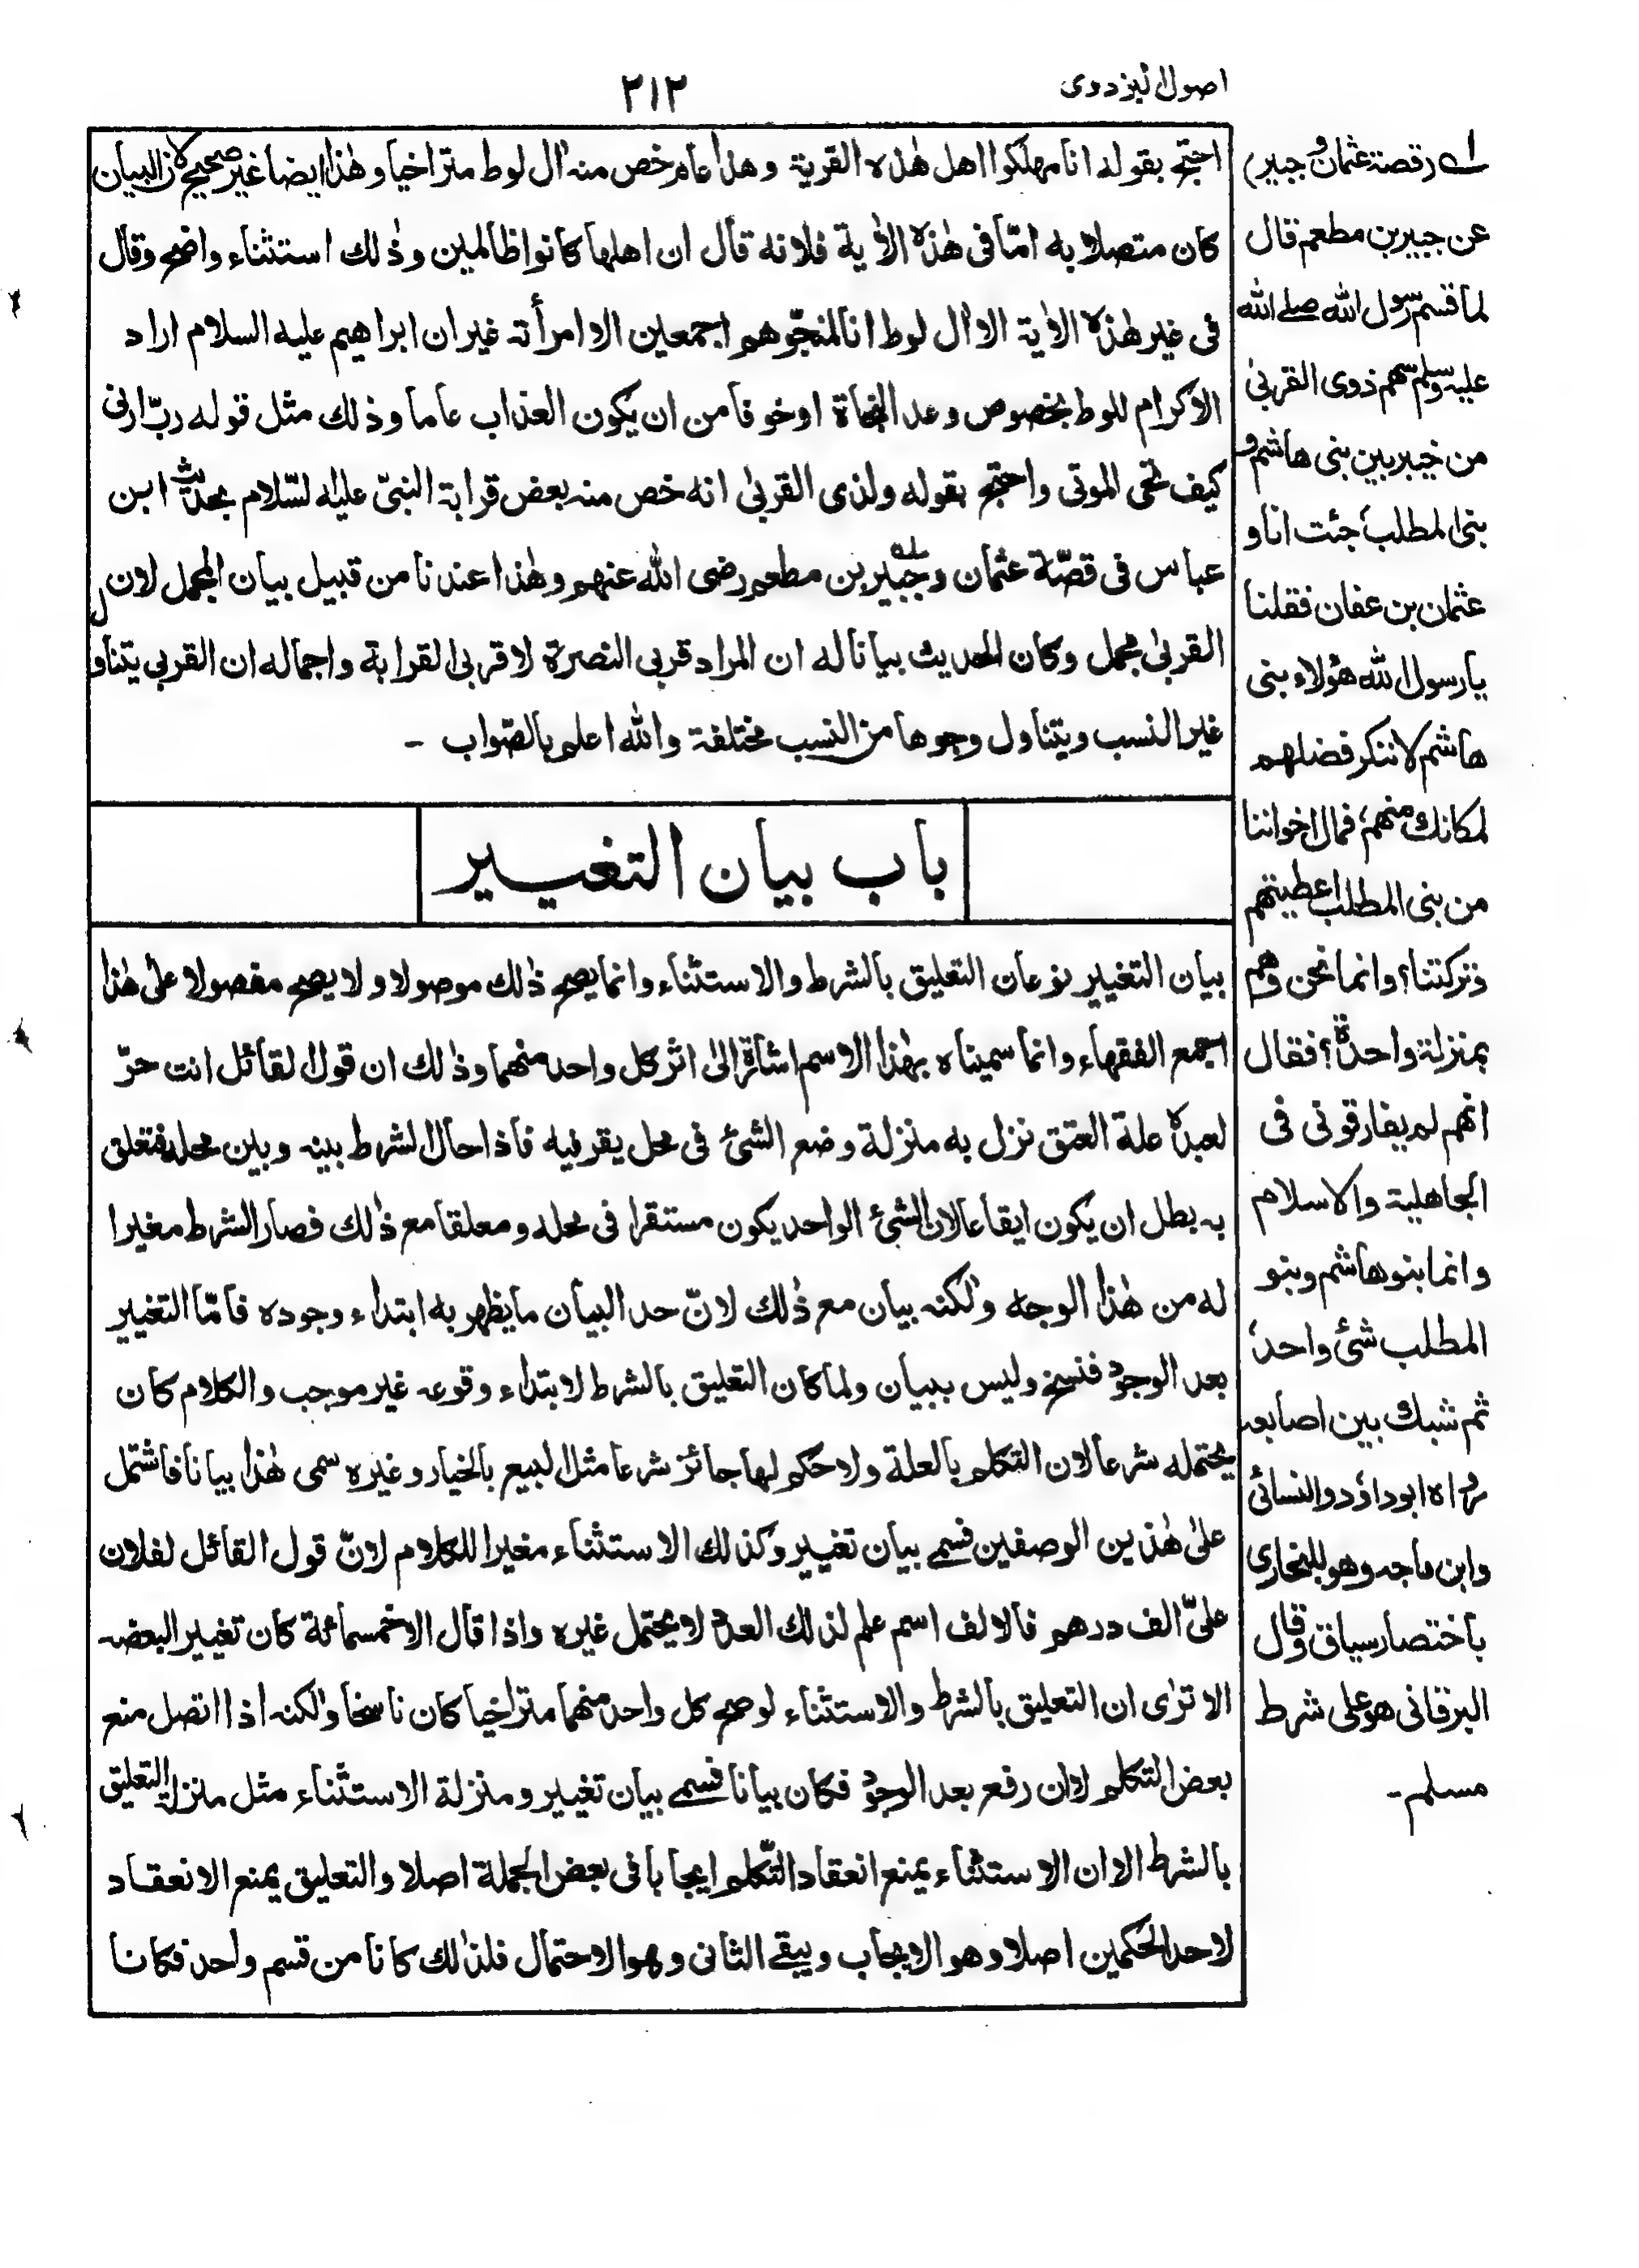 اصول البزدوی
٢١٢
احتج بقوله انا مهلكوا اهل هٰذه القرية وهذا عام خص منه اٰل لوط متراخيا وهٰذا ايضا غير صحيح لان البيان
كان متصلا به امّا فى هٰذه الاٰية فلانه قال ان اهلها كانوا ظالمين وذٰلك استثناء واضح وقال
فى غير هٰذه الاٰية الا اٰل لوط انا لمنجّوهم اجمعين الا امرأته غير ان ابراهيم عليه السلام اراد
الاكرام للوط بخصوص وعد النجاة او خوفا من ان يكون العذاب عاما وذلك مثل قوله ربّ ارنى
كيف تحى الموتى واحتج بقوله ولذى القربىٰ انه خص منه بعض قرابة النبىّ عليه السّلام بحديث ابن
عباس فى قصّة عثمان وجبير بن مطعم رضى الله عنهم وهٰذا عندنا من قبيل بيان المجمل لان
القربىٰ مجمل وكان الحديث بيانا له ان المراد قربى النصرة لا قربى القرابة واجماله ان القربى يتناول
غير النسب ويتناول وجوها من النسب مختلفة والله اعلم بالصّواب -
باب بيان التغيير
بيان التغيير نوعان التعليق بالشرط والاستثناء وانما يصح ذٰلك موصولا ولا يصح مفصولا علىٰ هٰذا
اجمع الفقهاء وانما سميناه بهٰذا الاسم اشارة الىٰ اثر كل واحد منهما وذٰلك ان قول القائل انت حرّ
لعبده علة العتق نزل به منزلة وضع الشئ فى محل يقر فيه فاذا حال الشرط بينه وبين محله فتعلق
به بطل ان يكون ايقاعا لان الشئ الواحد يكون مستقرا فى محله ومعلقا مع ذٰلك فصار الشرط مغيرا
له من هٰذا الوجه ولٰكنه بيان مع ذٰلك لانّ حد البيان ما يظهر به ابتداء وجوده فامّا التغيير
بعد الوجود فنسخ وليس ببيان ولما كان التعليق بالشرط لابتداء وقوعه غير موجب والكلام كان
يحتمله شرعا لان التكلم بالعلة ولا حكم لها جائز شرعا مثل البيع بالخيار وغيره سمى هٰذا بيانا فاشتمل
علىٰ هٰذين الوصفين فسمى بيان تغيير وكذلك الاستثناء مغيرا للكلام لانّ قول القائل لفلان
علىّ الف درهم فالالف اسم علم لذلك العدد لا يحتمل غيره واذا قال الا خمسمائة كان تغيير البعضه
الا ترٰى ان التعليق بالشرط والاستثناء لو صح كل واحد منهما متراخيا كان ناسخا ولٰكنه اذا اتصل منع
بعض التكلم لا ان رفع بعد الوجود فكان بيانا فسمى بيان تغيير ومنزلة الاستثناء مثل منزلة التعليق
بالشرط الا ان الاستثناء يمنع انعقاد التّكلم ايجابا فى بعض الجملة اصلا والتعليق يمنع الانعقاد
لاحد الحكمين اصلا وهو الايجاب ويبقى الثانى وهو الاحتمال فلذٰلك كانا من قسم واحد فكانا
لــه (قصة عثمان و جبير)
عن جبير بن مطعم قال
لما قسم رسول الله صلى الله
عليه وسلم سهم ذوى القربىٰ
من خيبر بين بنى هاشم و
بنى المطلب، جئت انا و
عثمان بن عفان فقلنا
يا رسول الله هٰؤلاء بنى
هاشم لا ننكر فضلهم
لمكانك منهم، فمال اخواننا
من بنى المطلب اعطيتهم
وتركتنا؟ وانما نحن وهم
بمنزلة واحدة؟ فقال
انهم لم يفارقونى فى
الجاهلية والاسلام
وانما بنو هاشم وبنو
المطلب شئ واحد،
ثم شبك بين اصابعه
رواه ابوداؤد والنسائى
وابن ماجه وهو للبخارى
باختصار سياق وقال
البرقانى هو على شرط
مسلم -